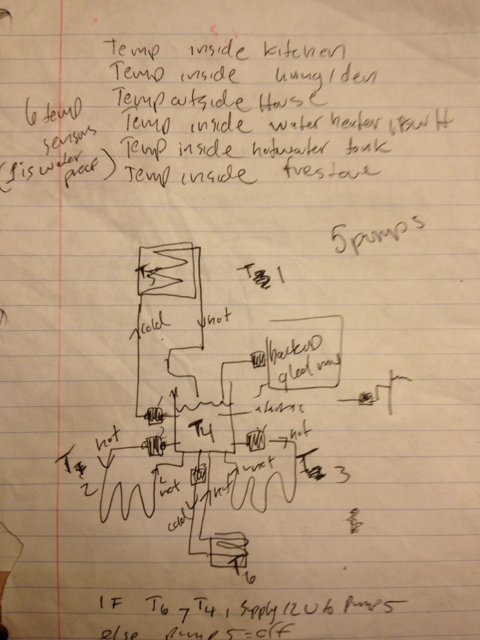 Temp inside kitchen
Temp inside living/den
Temp outside House
Temp inside water heater
Temp inside hotwater tank
Temp inside firestove
6 temp
sensors
(1 is water
proof)
5 pumps
T5
T 1
cold
hot
backup
T4
hot
T
2
hot
hot
T 3
cold
hot
T6
IF T6 > T4, supply 12V to pump 5
else pump 5 = off